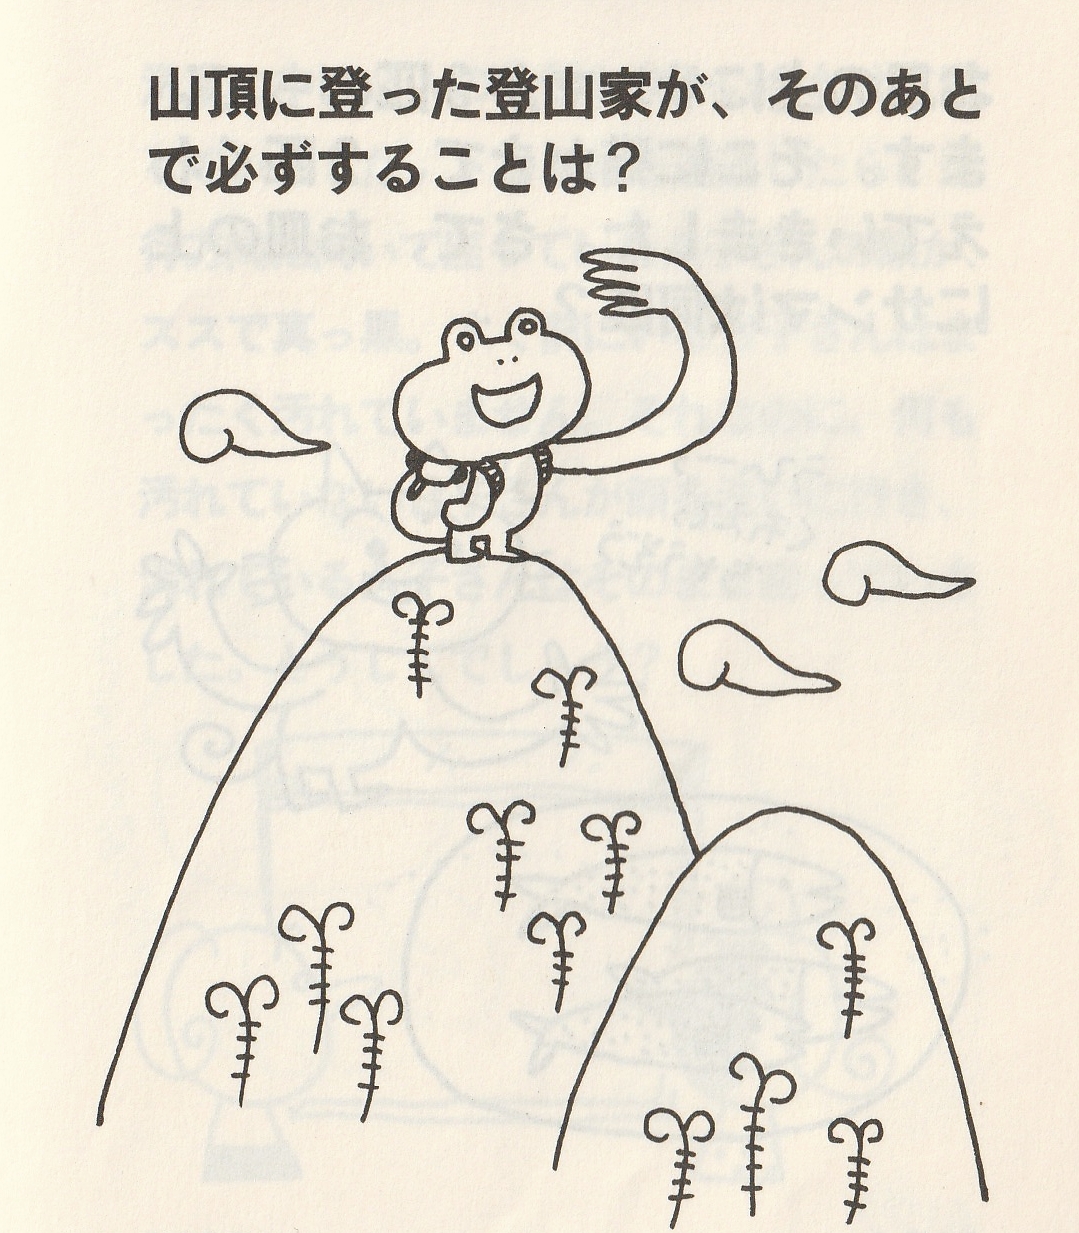 山頂に登った登山家が、そのあと
で必ずすることは？